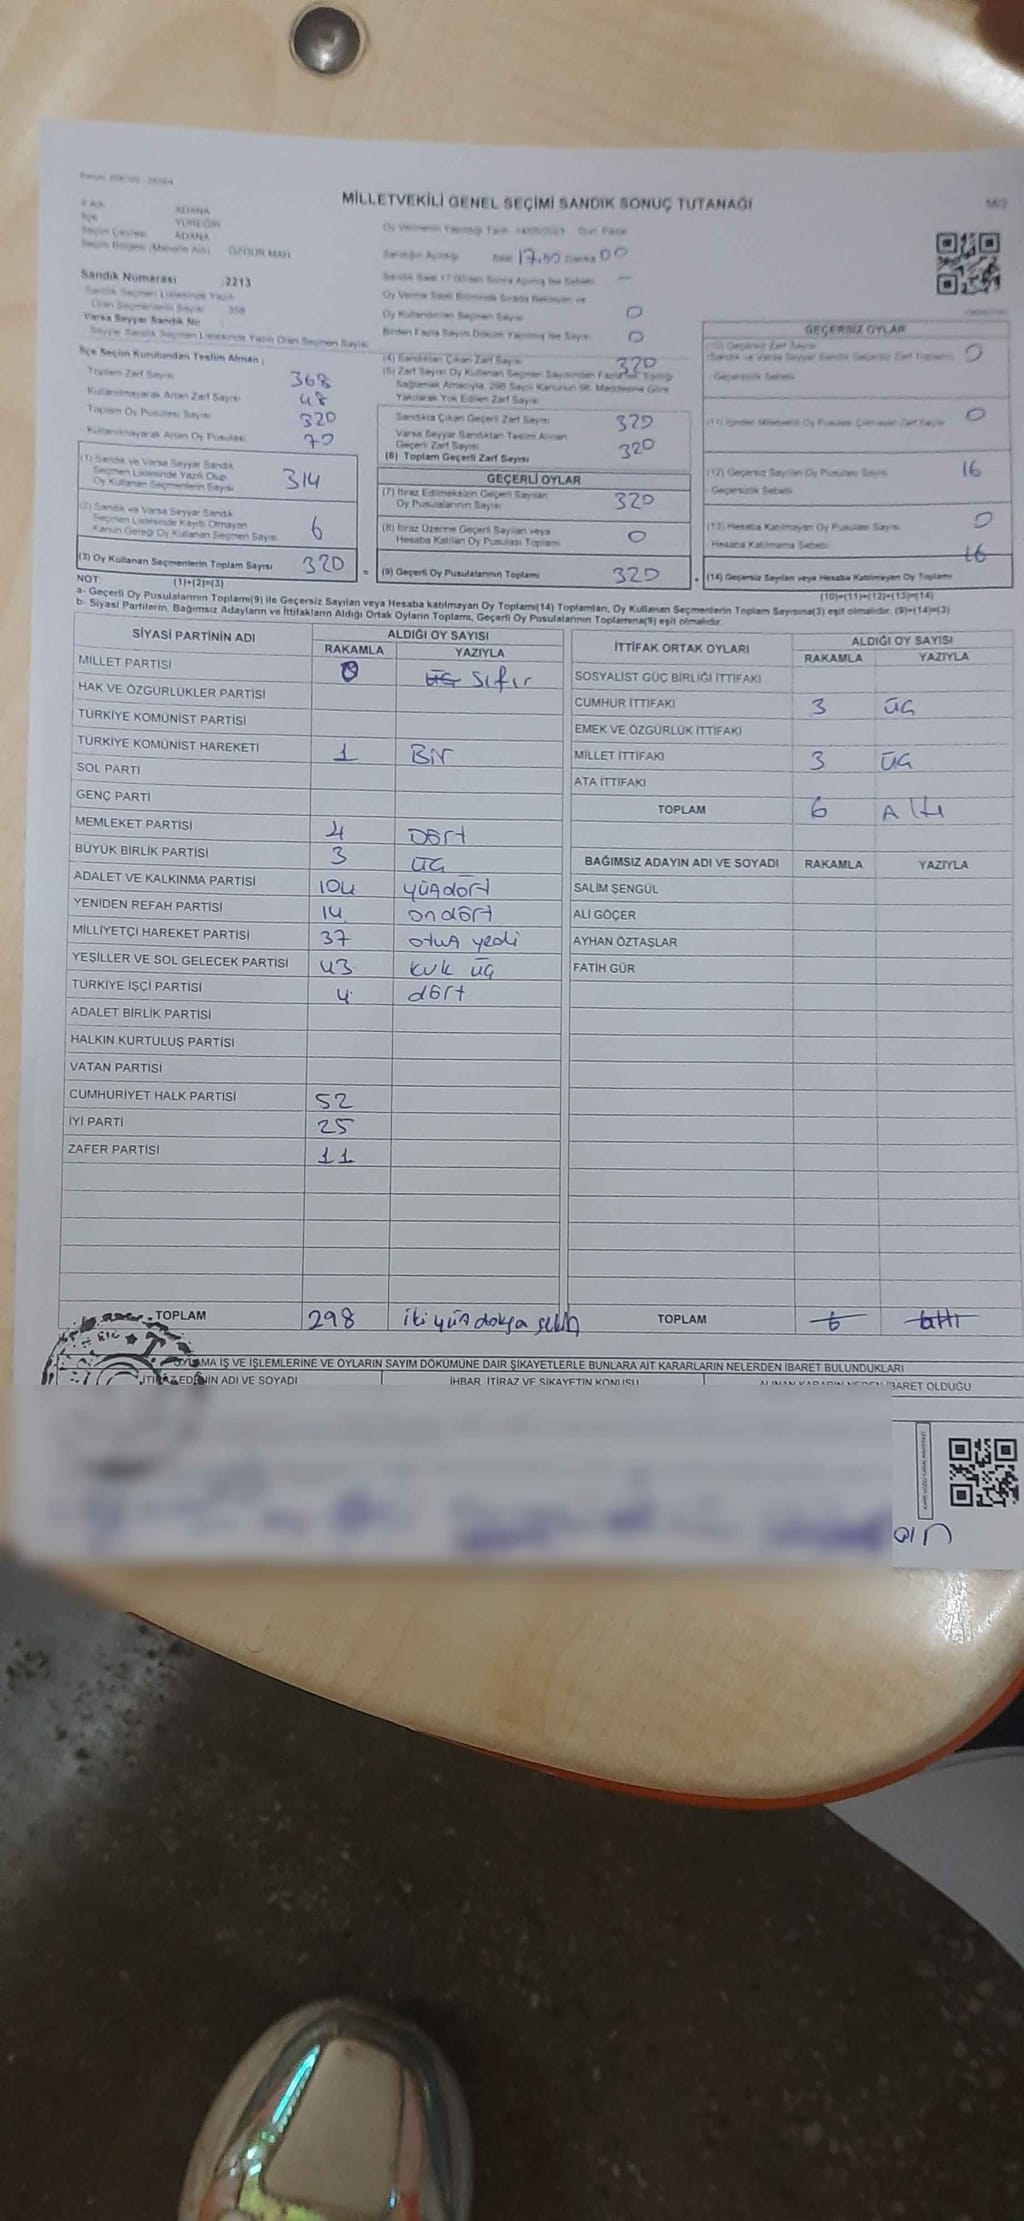 MİLLETVEKİLİ GENEL SEÇİMİ SANDIK SONUÇ TUTANAĞI
İl Adı ADANA
İlçe YÜREĞİR
Seçim Çevresi ADANA
Seçim Bölgesi (Mahalle Adı) ÖZGÜR MAH
Sandık Numarası :2213
Sandık Seçmen Listesinde Yazılı
Olan Seçmenlerin Sayısı
Varsa Seyyar Sandık No
Seyyar Sandık Seçmen Listesinde Yazılı Olan Seçmen Sayısı
Oy Vermenin Yapıldığı Tarih Gün Pazar
Sandığın Açıldığı Saat 17.00 Dakika 00
Sandık Saat 17:00'den Sonra Açılmış İse Sebebi —
Oy Verme Saati Bitiminde Sırada Bekleyen ve
Oy Kullandırılan Seçmen Sayısı 0
Birden Fazla Sayım Döküm Yapılmış İse Sayısı 0
İlçe Seçim Kurulundan Teslim Alınan ;
Toplam Zarf Sayısı 368
Kullanılmayarak Artan Zarf Sayısı 48
Toplam Oy Pusulası Sayısı 320
Kullanılmayarak Artan Oy Pusulası 70
(1) Sandık ve Varsa Seyyar Sandık
Seçmen Listesinde Yazılı Olup
Oy Kullanan Seçmenlerin Sayısı 314
(2) Sandık ve Varsa Seyyar Sandık
Seçmen Listesinde Kayıtlı Olmayan
Kanun Gereği Oy Kullanan Seçmen Sayısı 6
(3) Oy Kullanan Seçmenlerin Toplam Sayısı 320
(4) Sandıktan Çıkan Zarf Sayısı 320
(5) Zarf Sayısı Oy Kullanan Seçmen Sayısından Fazla İse, Eşitliği
Sağlamak Amacıyla, 298 Sayılı Kanunun 98. Maddesine Göre
Yakılarak Yok Edilen Zarf Sayısı
Sandıkta Çıkan Geçerli Zarf Sayısı 320
Varsa Seyyar Sandıktan Teslim Alınan
Geçerli Zarf Sayısı 320
(6) Toplam Geçerli Zarf Sayısı
GEÇERLİ OYLAR
(7) İtiraz Edilmeksizin Geçerli Sayılan
Oy Pusulalarının Sayısı 320
(8) İtiraz Üzerine Geçerli Sayılan veya
Hesaba Katılan Oy Pusulası Toplamı 0
= (9) Geçerli Oy Pusulalarının Toplamı 320
GEÇERSİZ OYLAR
(10) Geçersiz Zarf Sayısı
(Sandık ve Varsa Seyyar Sandık Geçersiz Zarf Toplamı) 0
- Geçersizlik Sebebi
(11) İçinden Milletvekili Oy Pusulası Çıkmayan Zarf Sayısı 0
(12) Geçersiz Sayılan Oy Pusulası Sayısı 16
- Geçersizlik Sebebi
(13) Hesaba Katılmayan Oy Pusulası Sayısı 0
- Hesaba Katılmama Sebebi
16
+ (14) Geçersiz Sayılan veya Hesaba Katılmayan Oy Toplamı
NOT: (1)+(2)=(3)
(10)+(11)+(12)+(13)=(14)
a- Geçerli Oy Pusulalarının Toplamı(9) ile Geçersiz Sayılan veya Hesaba katılmayan Oy Toplamı(14) Toplamları, Oy Kullanan Seçmenlerin Toplam Sayısına(3) eşit olmalıdır. (9)+(14)=(3)
b- Siyasi Partilerin, Bağımsız Adayların ve İttifakların Aldığı Ortak Oyların Toplamı, Geçerli Oy Pusulalarının Toplamına(9) eşit olmalıdır.
SİYASİ PARTİNİN ADI ALDIĞI OY SAYISI
RAKAMLA YAZIYLA
MİLLET PARTİSİ 0 üç sıfır
HAK VE ÖZGÜRLÜKLER PARTİSİ
TÜRKİYE KOMÜNİST PARTİSİ
TÜRKİYE KOMÜNİST HAREKETİ 1 Bir
SOL PARTİ
GENÇ PARTİ
MEMLEKET PARTİSİ 4 Dört
BÜYÜK BİRLİK PARTİSİ 3 üç
ADALET VE KALKINMA PARTİSİ 104 yüzdört
YENİDEN REFAH PARTİSİ 14 ondört
MİLLİYETÇİ HAREKET PARTİSİ 37 otuz yedi
YEŞİLLER VE SOL GELECEK PARTİSİ 43 kırk üç
TÜRKİYE İŞÇİ PARTİSİ 4 dört
ADALET BİRLİK PARTİSİ
HALKIN KURTULUŞ PARTİSİ
VATAN PARTİSİ
CUMHURİYET HALK PARTİSİ 52
İYİ PARTİ 25
ZAFER PARTİSİ 11
TOPLAM 298 ikiyüz doksan sekiz
İTTİFAK ORTAK OYLARI ALDIĞI OY SAYISI
RAKAMLA YAZIYLA
SOSYALİST GÜÇ BİRLİĞİ İTTİFAKI
CUMHUR İTTİFAKI 3 üç
EMEK VE ÖZGÜRLÜK İTTİFAKI
MİLLET İTTİFAKI 3 üç
ATA İTTİFAKI
TOPLAM 6 Altı
BAĞIMSIZ ADAYIN ADI VE SOYADI RAKAMLA YAZIYLA
SALİM ŞENGÜL
ALİ GÖÇER
AYHAN ÖZTAŞLAR
FATİH GÜR
TOPLAM 6 altı
OYLAMA İŞ VE İŞLEMLERİNE VE OYLARIN SAYIM DÖKÜMÜNE DAİR ŞİKAYETLERLE BUNLARA AİT KARARLARIN NELERDEN İBARET BULUNDUKLARI
İTİRAZ EDENİN ADI VE SOYADI İHBAR, İTİRAZ VE ŞİKAYETİN KONUSU ALINAN KARARIN NEDEN İBARET OLDUĞU